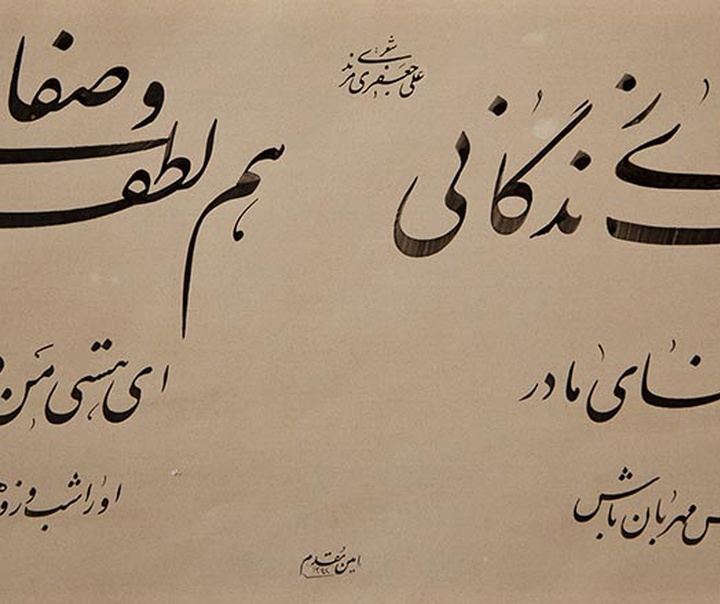 شعری
علی جعفری مرند
زندگانی
هم لطف و صفا
مای مادر
ای هستی من
مهربان باش
او را شب و روز
امین مقدم
۱۳۹۲